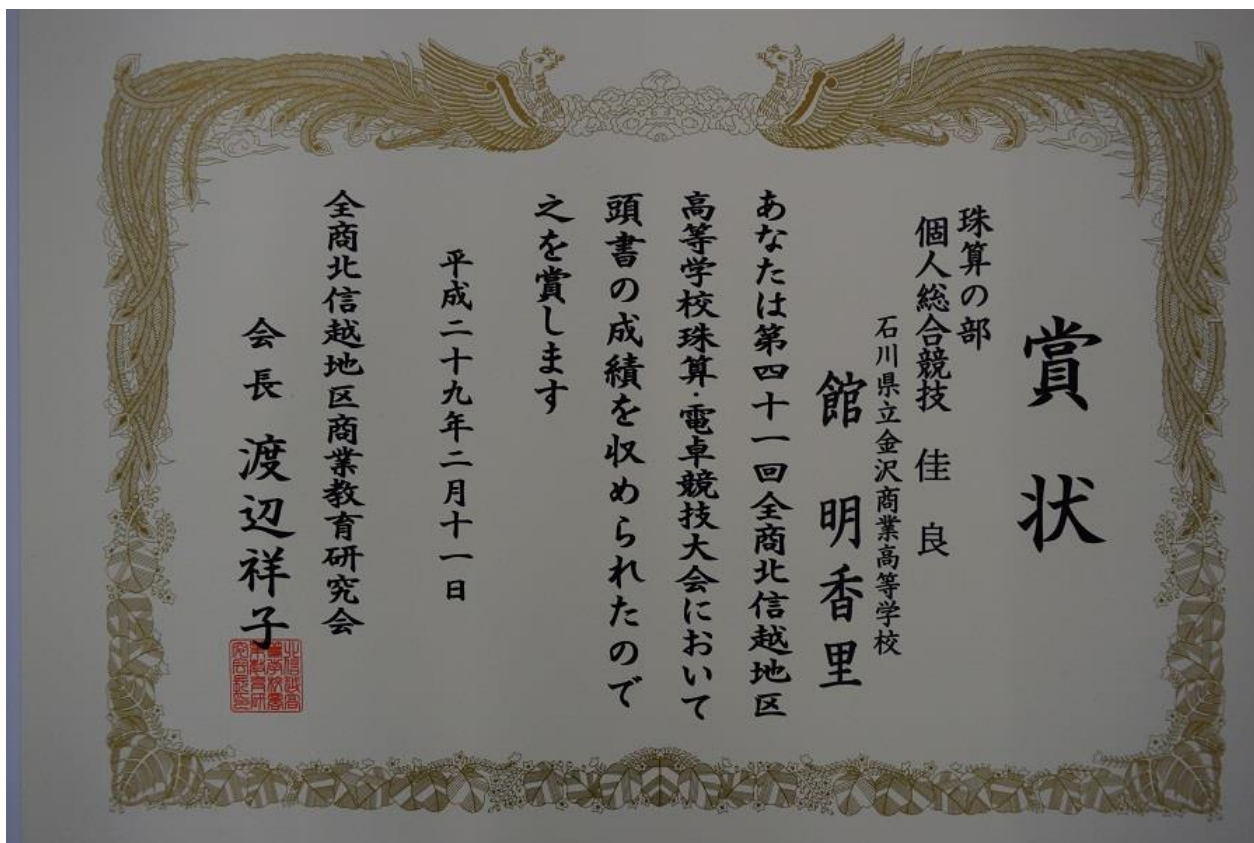 賞状
珠算の部
個人総合競技 佳良
石川県立金沢商業高等学校
館 明香里
あなたは第四十一回全商北信越地区
高等学校珠算・電卓競技大会において
頭書の成績を収められたので
之を賞します
平成二十九年二月十一日
全商北信越地区商業教育研究会
会長 渡辺祥子